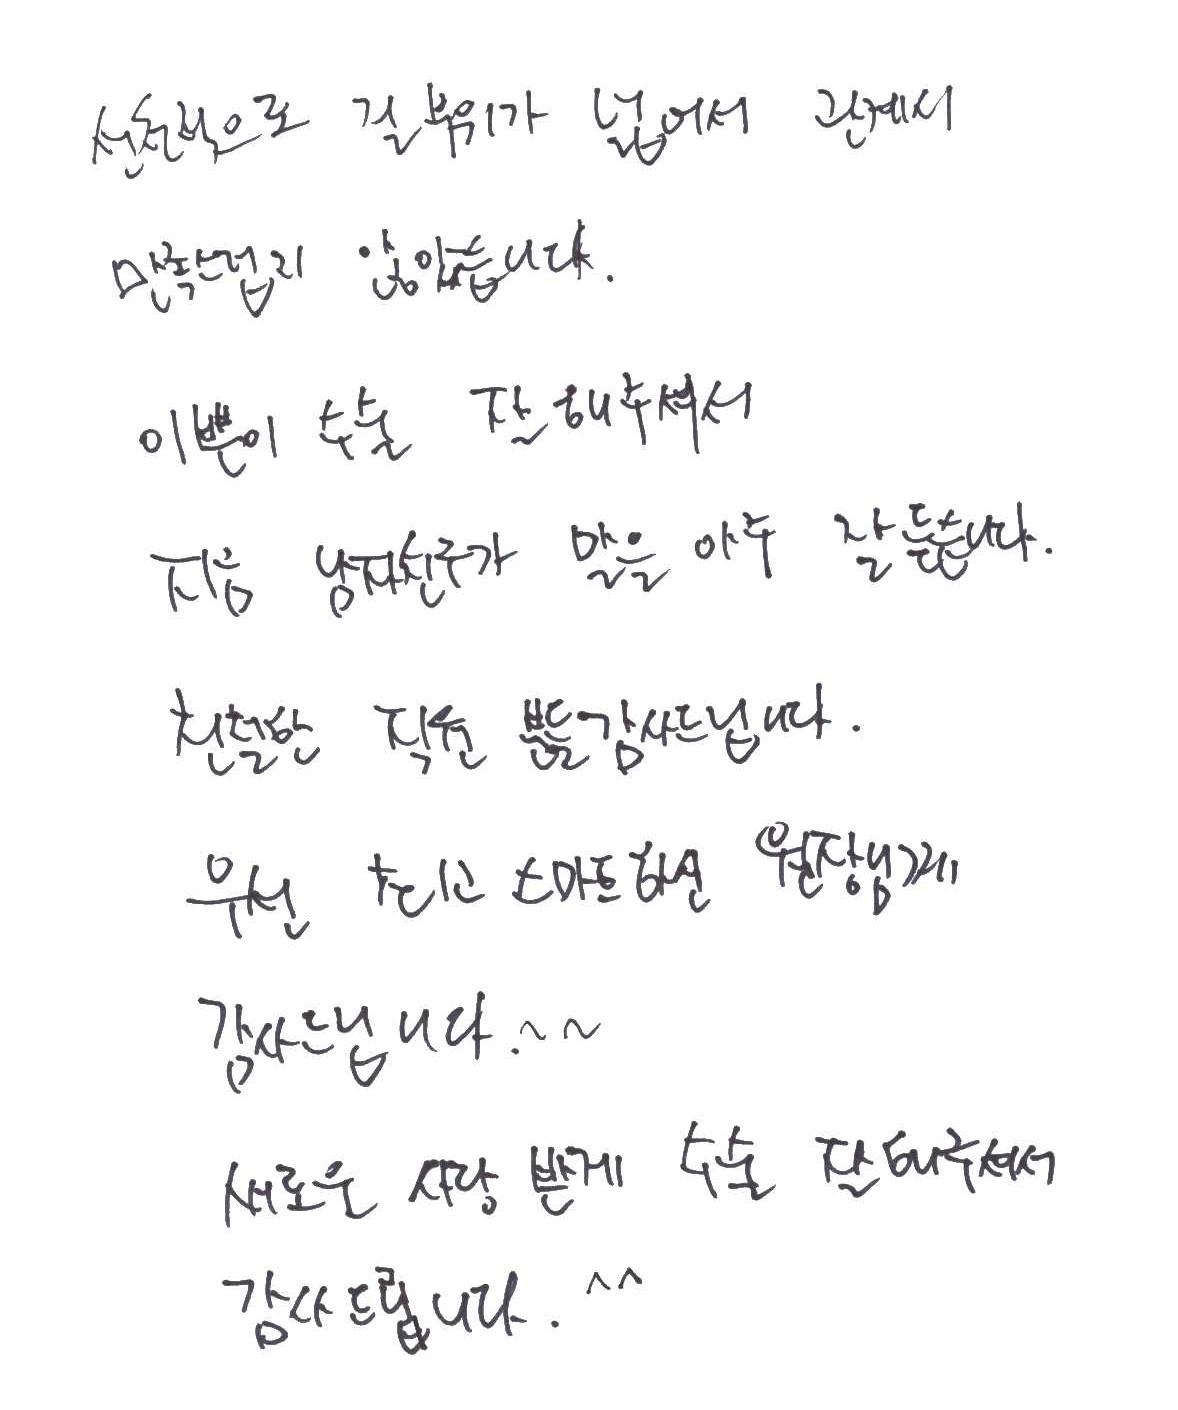 선천적으로 질 부위가 넓어서 관계시
만족스럽지 않았습니다.
이쁜이 수술 잘 해주셔서
지금 남자친구가 말을 아주 잘 듣습니다.
친절한 직원 분들 감사드립니다.
우선 하시고 스마트하신 원장님께
감사드립니다.~~
새로운 사랑 받게 수술 잘 해주셔서
감사드립니다. ^^